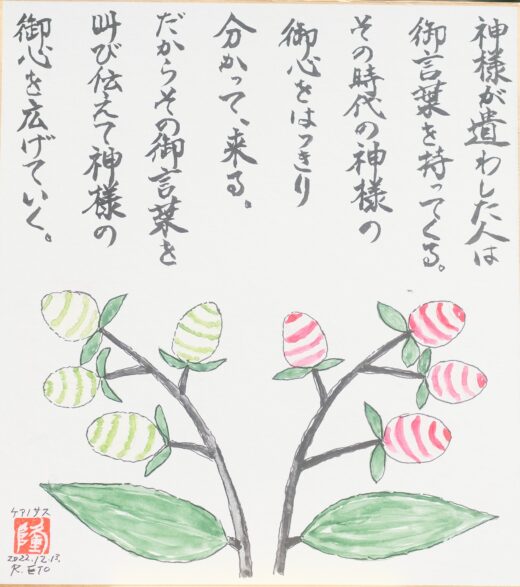 神様が遺わした人は
御言葉を持ってくる。
その時代の神様の
御心をはっきり
分かって、来る。
だからその御言葉を
叫び伝えて神様の
御心を広げていく。
ケアノサス
隆
2022.12.13.
R. ETO